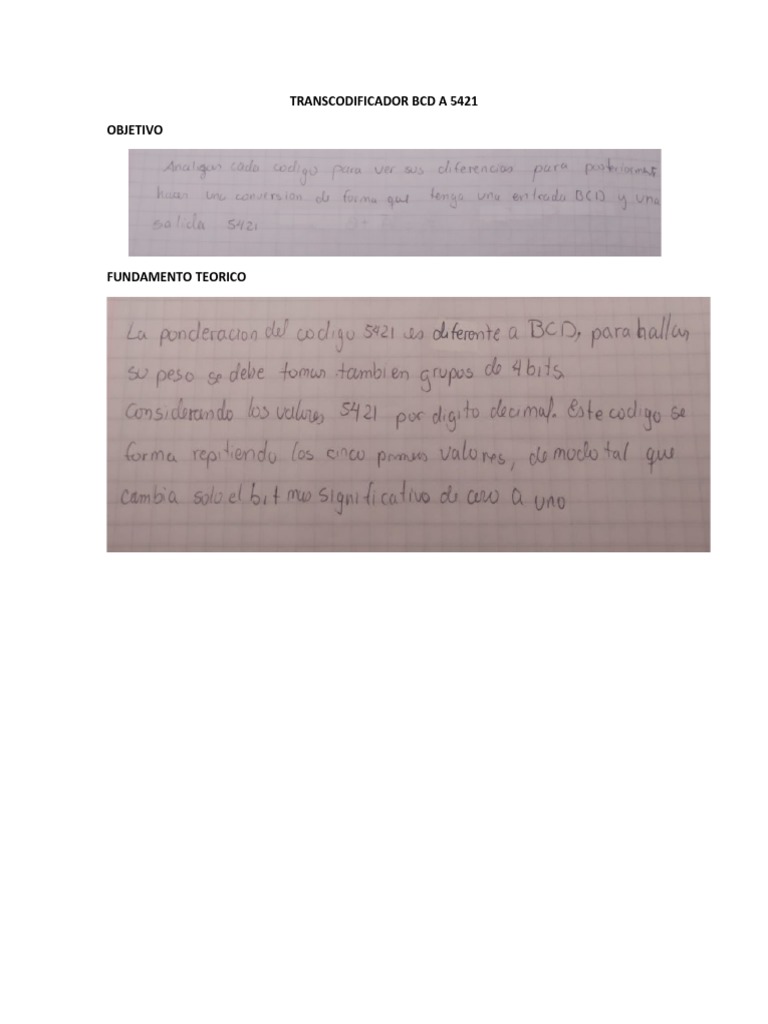 TRANSCODIFICADOR BCD A 5421
OBJETIVO
Analizar cada codigo para ver sus diferencias para posteriormente
hacer una conversion de forma que tenga una entrada BCD y una
salida 5421
FUNDAMENTO TEORICO
La ponderacion del codigo 5421 es diferente a BCD, para hallar
su peso se debe tomar tambien grupos de 4 bits.
Considerando los valores 5421 por digito decimal. Este codigo se
forma repitiendo los cinco primeros valores, de modo tal que
cambia solo el bit mas significativo de cero a uno